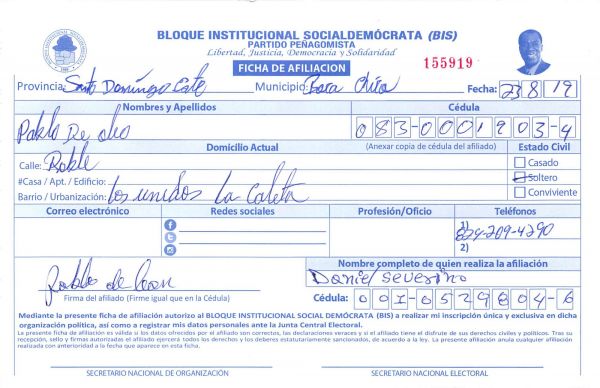 BLOQUE INSTITUCIONAL SOCIALDEMÓCRATA (BIS)
PARTIDO PEÑAGOMISTA
Libertad, Justicia, Democracia y Solidaridad
FICHA DE AFILIACION
155919
Provincia: Santo Domingo Este Municipio: Boca Chica Fecha: 23 8 19
Nombres y Apellidos Cédula
Pablo De 083-0001903-4
Domicilio Actual (Anexar copia de cédula del afiliado) Estado Civil
Calle: Roble Casado
#Casa / Apt. / Edificio: Soltero
Barrio / Urbanización: los unidos La Caleta Conviviente
Correo electrónico Redes sociales Profesión/Oficio Teléfonos
1) 829-209-4290
2)
Nombre completo de quien realiza la afiliación
Pablo de leon Daniel Severino
Firma del afiliado (Firme igual que en la Cédula) Cédula: 001-0529804-6
Mediante la presente ficha de afiliación autorizo al BLOQUE INSTITUCIONAL SOCIAL DEMÓCRATA (BIS) a realizar mi inscripción única y exclusiva en dicha
organización política, así como a registrar mis datos personales ante la Junta Central Electoral.
La presente ficha de afiliación es válida si los datos ofrecidos por el afiliado son correctos, las declaraciones veraces y si el afiliado tiene el disfrute de sus derechos civiles y políticos. Tras su
recepción, sello y firmas autorizadas el afiliado ejercerá todos los derechos y los deberes estatutariamente sancionados, de acuerdo a la ley. La presente afiliación anula cualquier afiliación
realizada con anterioridad a la fecha que aparece en esta ficha.
SECRETARIO NACIONAL DE ORGANIZACIÓN SECRETARIO NACIONAL ELECTORAL